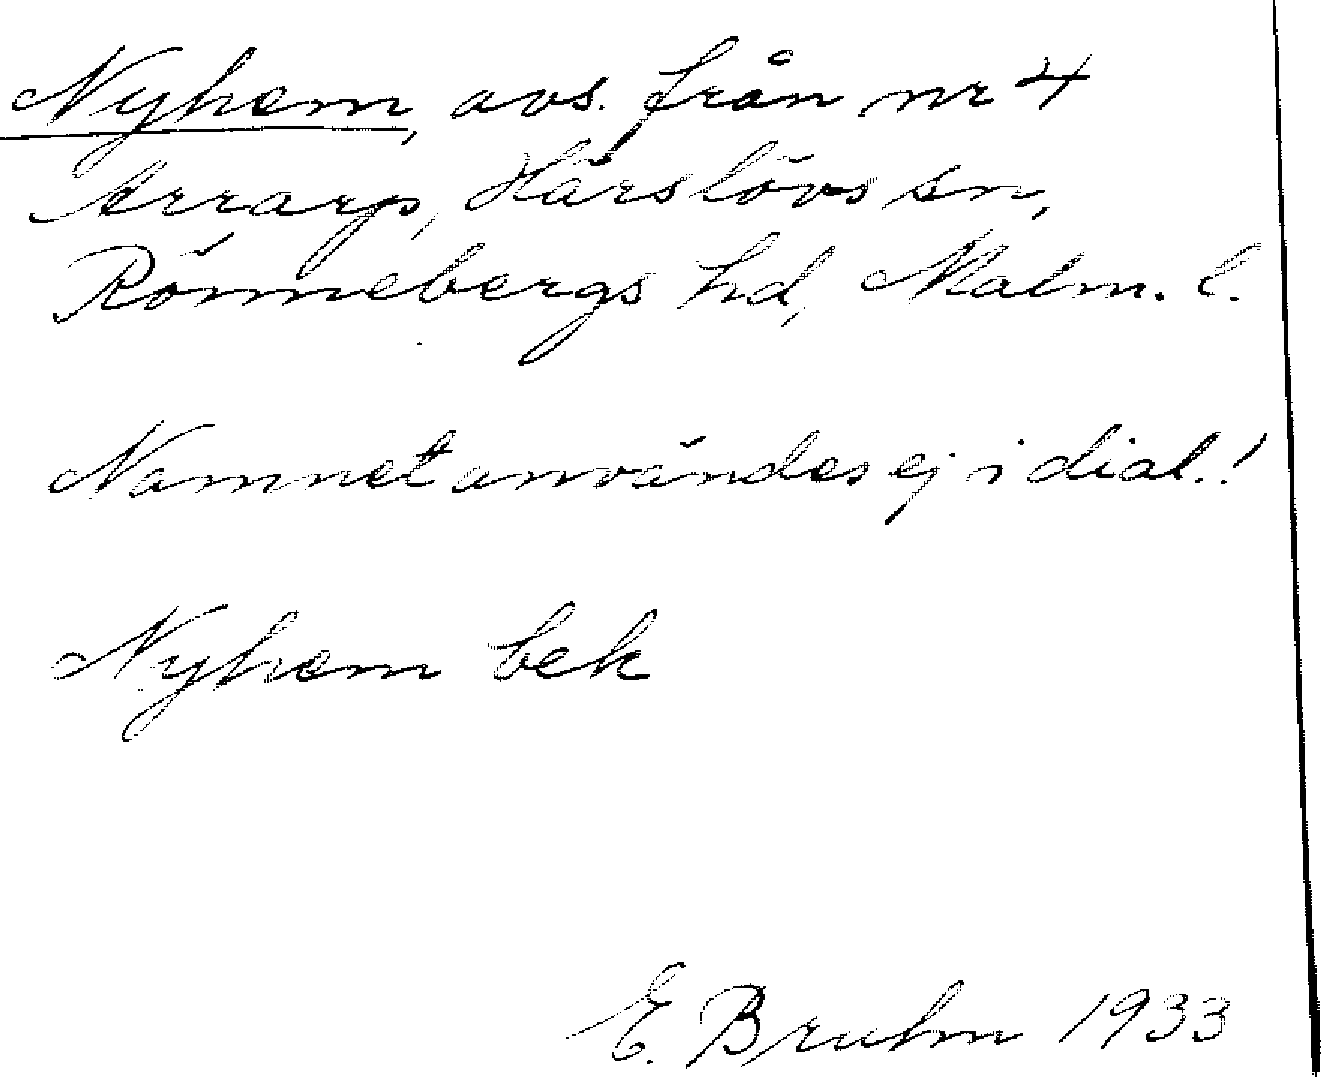 Nyhem, avs. från nr 4
Arrarp, Härslövs sn,
Rönnebergs hd, Malm. l.
Namnet användes ej i dial.!
Nyhem bek
E. Bruhn 1933